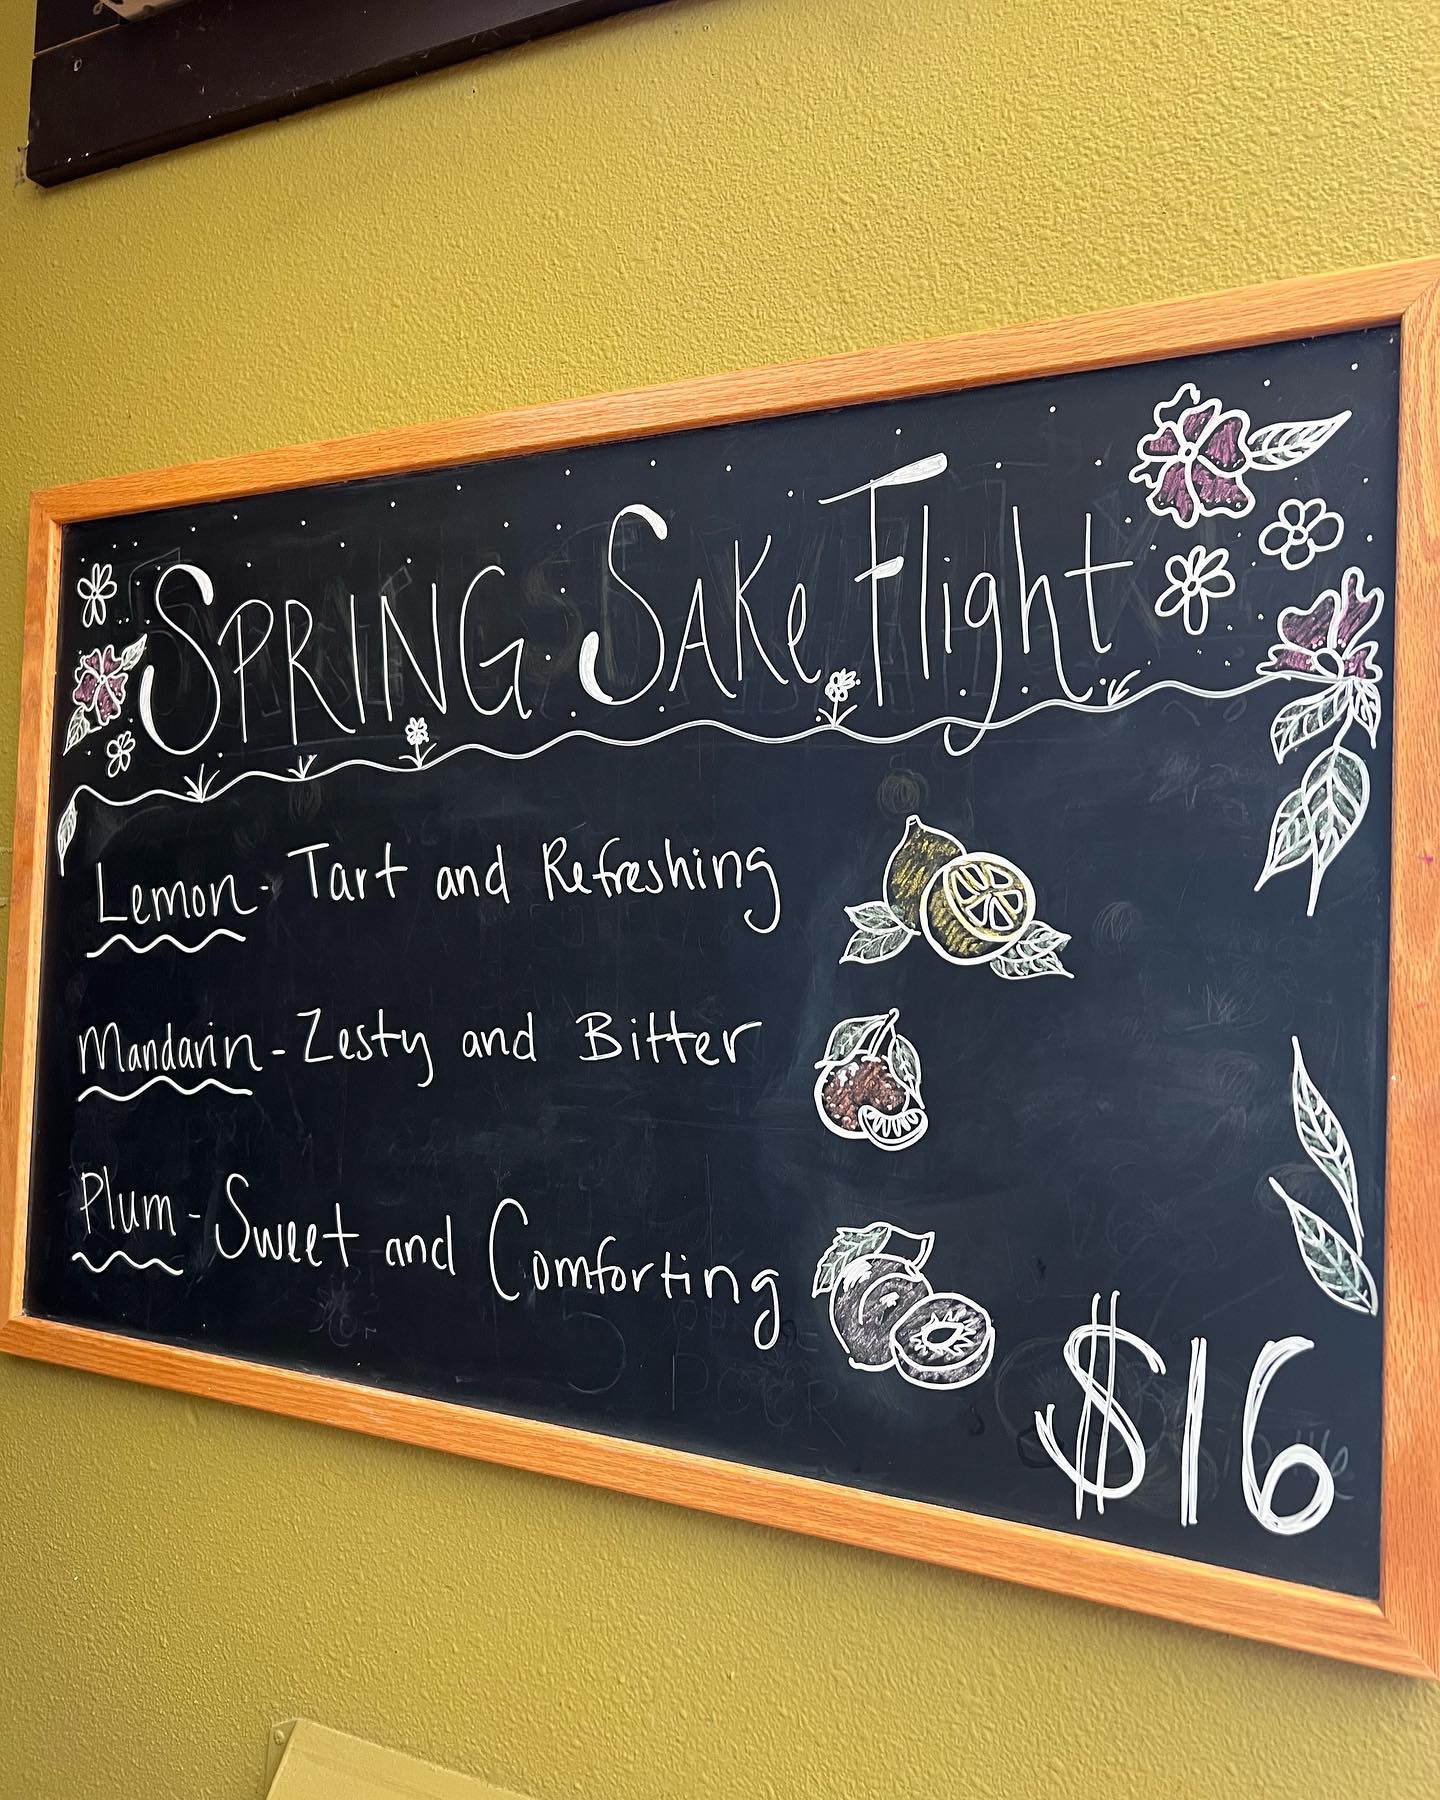 SPRING SAKe Flight
Lemon - Tart and Refreshing
Mandarin - Zesty and Bitter
Plum - Sweet and Comforting
$16